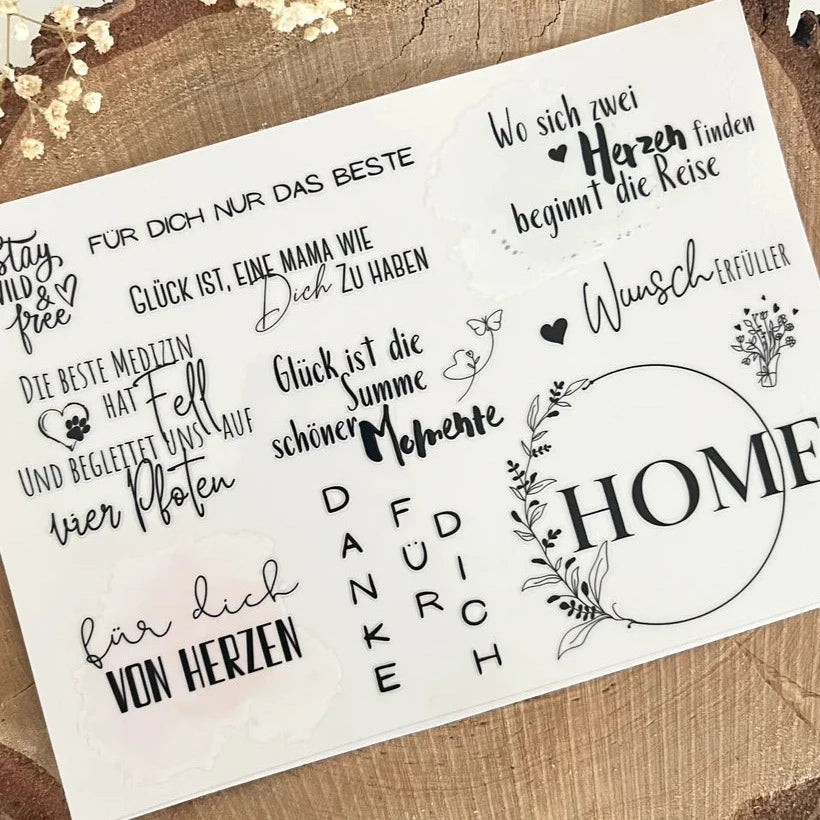 FÜR DICH NUR DAS BESTE
Wo sich zwei
Herzen finden
beginnt die Reise
Stay
WILD &
free
GLÜCK IST, EINE MAMA WIE
Dich ZU HABEN
Wunsch ERFÜLLER
DIE BESTE MEDIZIN
HAT Fell
UND BEGLEITET UNS AUF
vier Pfoten
Glück ist die
Summe
schöner Momente
HOME
für dich
VON HERZEN
DANKE
FÜR
DICH